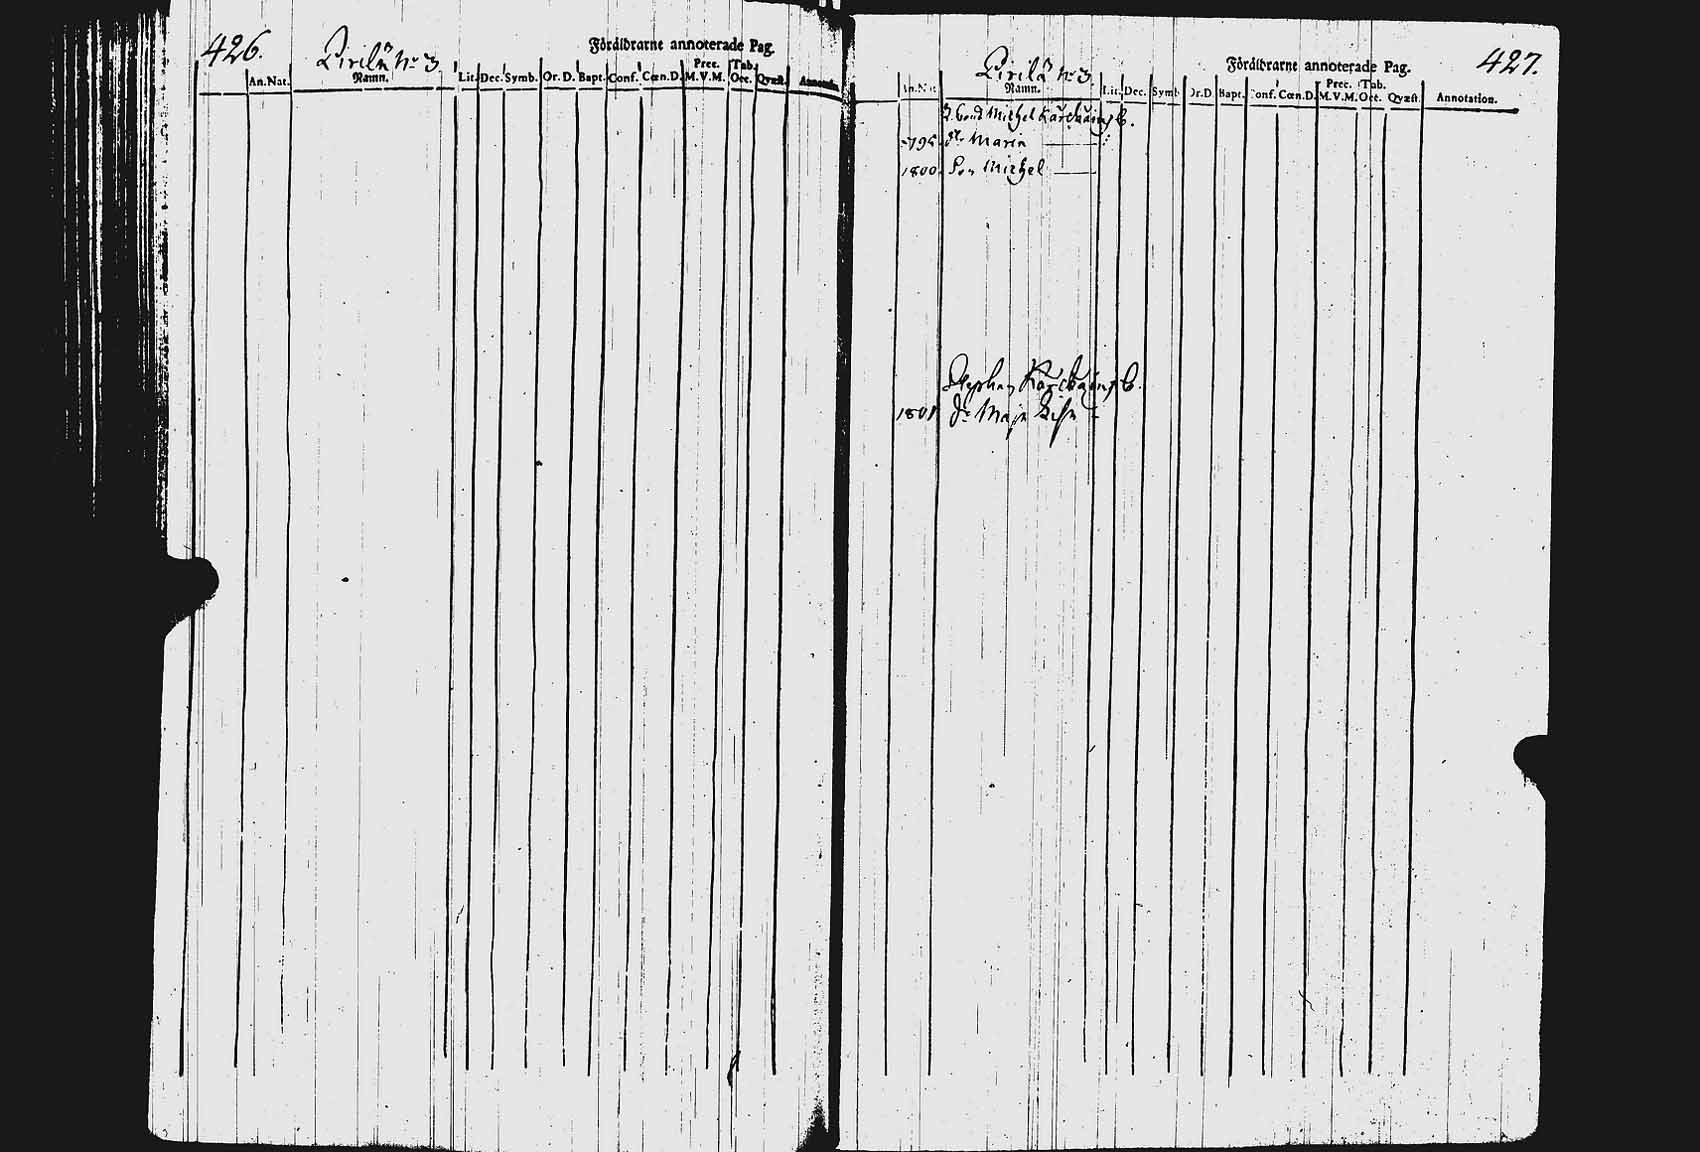 426.
Pirilä No 3
Föräldrarne annoterade Pag.
An. Nat. Namn. Lit. Dec. Symb. Or. D. Bapt. Conf. Cœn. D. Prec. M. V. M. Tab. Oec. Qvæst. Annotat.
427.
Pirilä No 3
Föräldrarne annoterade Pag.
An. Nat. Namn. Lit. Dec. Symb. Or. D. Bapt. Conf. Cœn. D. Prec. M. V. M. Tab. Oec. Qvæst. Annotation.
Michel
795 dr Maria
1800 Son Michel
Stephan
1801 dr Maja Lisa